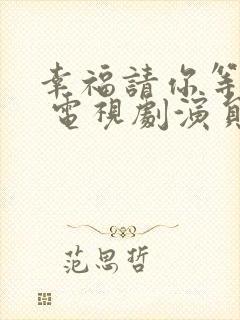 幸福請你等
電視劇演員
范思哲